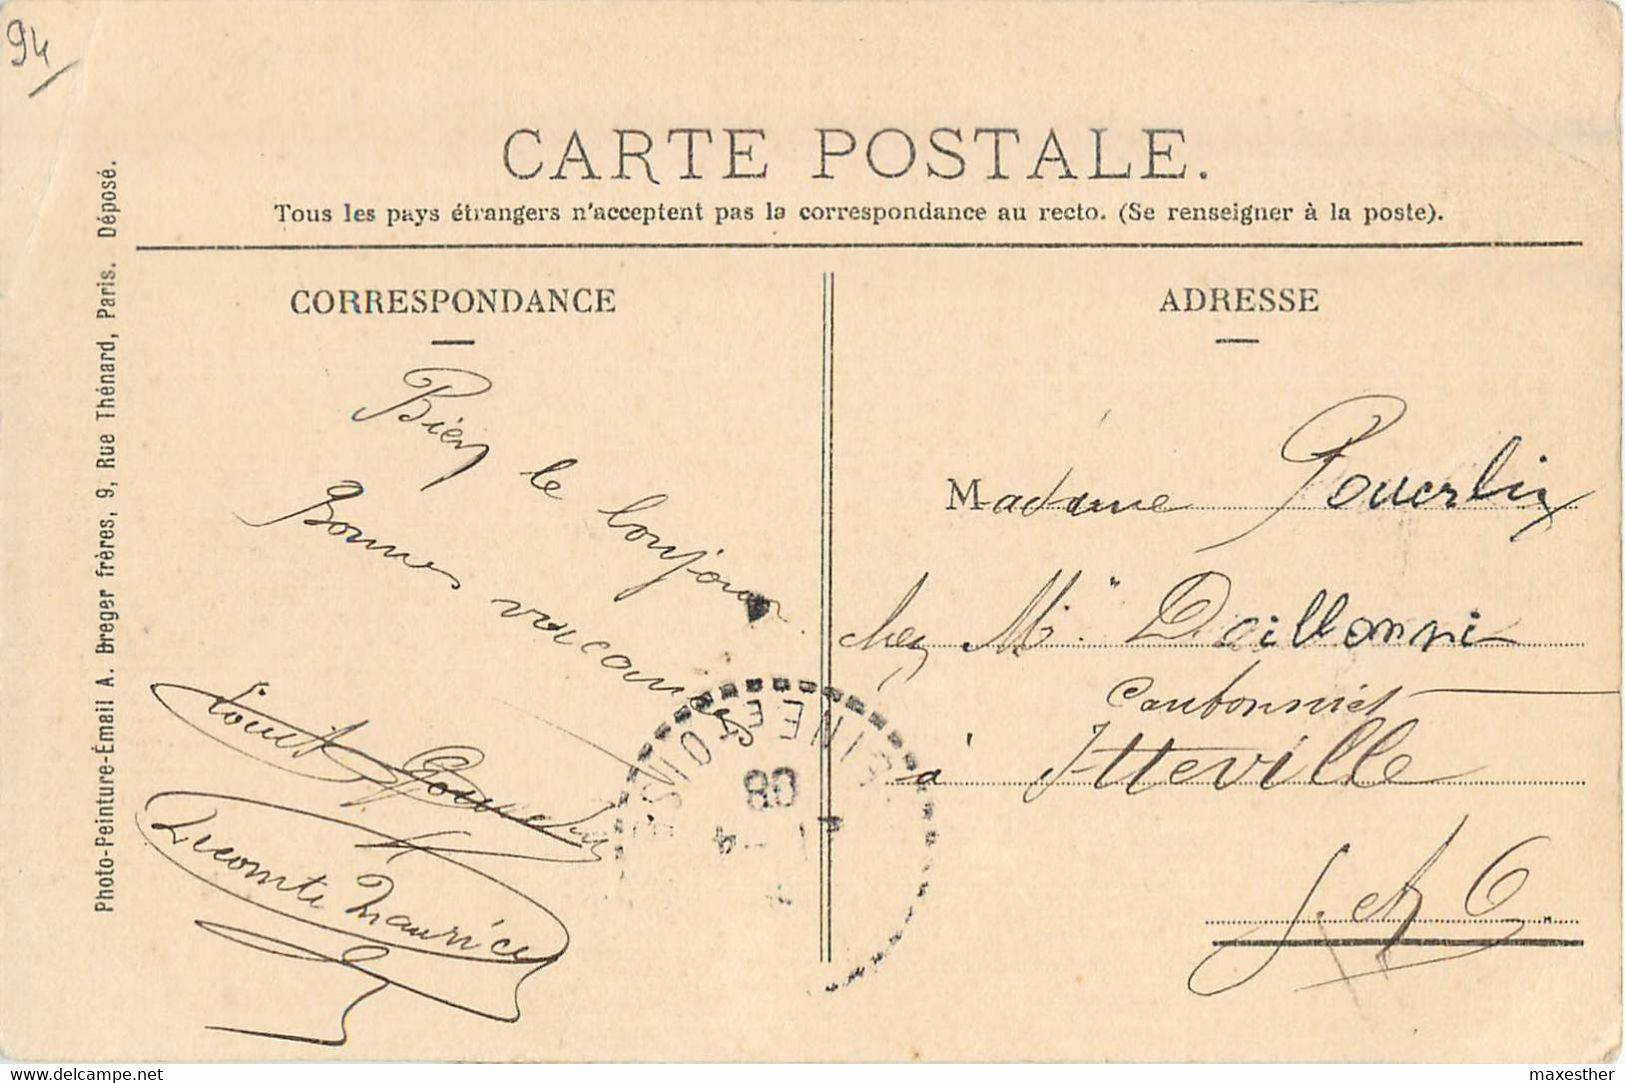 94
CARTE POSTALE.
Tous les pays étrangers n'acceptent pas la correspondance au recto. (Se renseigner à la poste).
Photo-Peinture-Émail A. Breger frères, 9, Rue Thénard, Paris. Déposé.
CORRESPONDANCE
Bien le bonjour
Bonnes vacances
Louis
Lecomte Maurice
ADRESSE
Madame Pouerlin
chez Mr
à Itteville
S. et O.
SEINE ET OISE
4
08
delcampe.net
maxesther